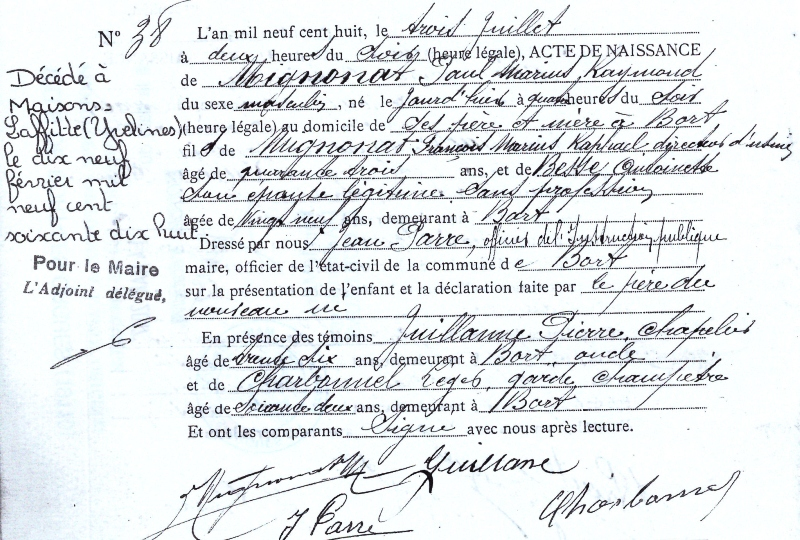 N° 38
L'an mil neuf cent huit, le trois Juillet
à deux heures du soir (heure légale), ACTE DE NAISSANCE
de Mignonat Paul Marius Raymond
du sexe masculin, né le jourd'hier à quatre heures du soir
(heure légale) au domicile de ses père et mère à Bort
fils de Mignonat François Marius Raphael directeur d'usine
âgé de quarante trois ans, et de Besse Antoinette
son épouse légitime sans profession
âgée de vingt neuf ans, demeurant à Bort
Dressé par nous Jean Parre, officier de l'Instruction publique
maire, officier de l'état-civil de la commune de Bort
sur la présentation de l'enfant et la déclaration faite par le père du
nouveau né
En présence des témoins Guillanne Pierre, chapelier
âgé de trente six ans, demeurant à Bort, oncle
et de Charbonnel Léger, garde champêtre
âgé de soixante deux ans, demeurant à Bort
Et ont les comparants Signé avec nous après lecture.
Décédé à
Maisons-
Laffitte (Yvelines)
le dix neuf
février mil
neuf cent
soixante dix huit
Pour le Maire
L'Adjoint délégué,
Guillane
J Parre
Charbonnel